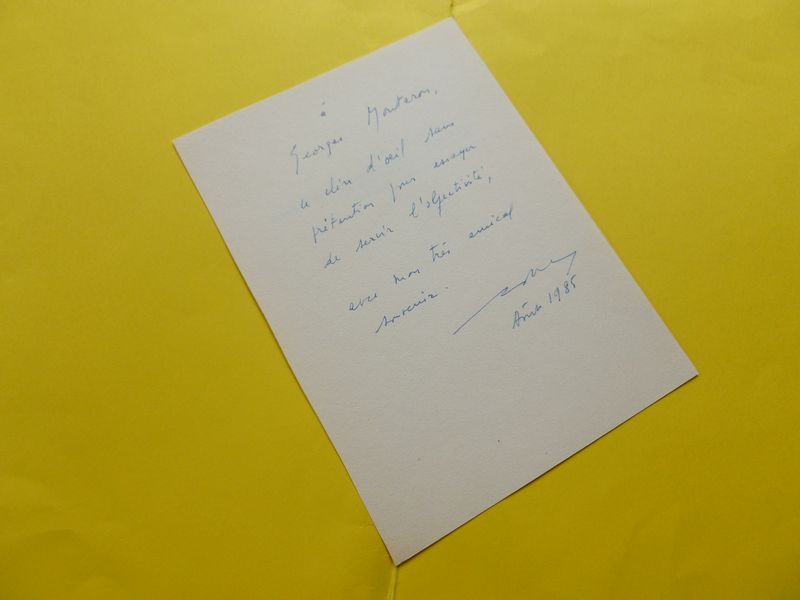 à
Georges Monteron,
ce clin d'oeil sans
prétention pour essayer
de servir l'objectivité,
avec mon très amical
souvenir.
Août 1985